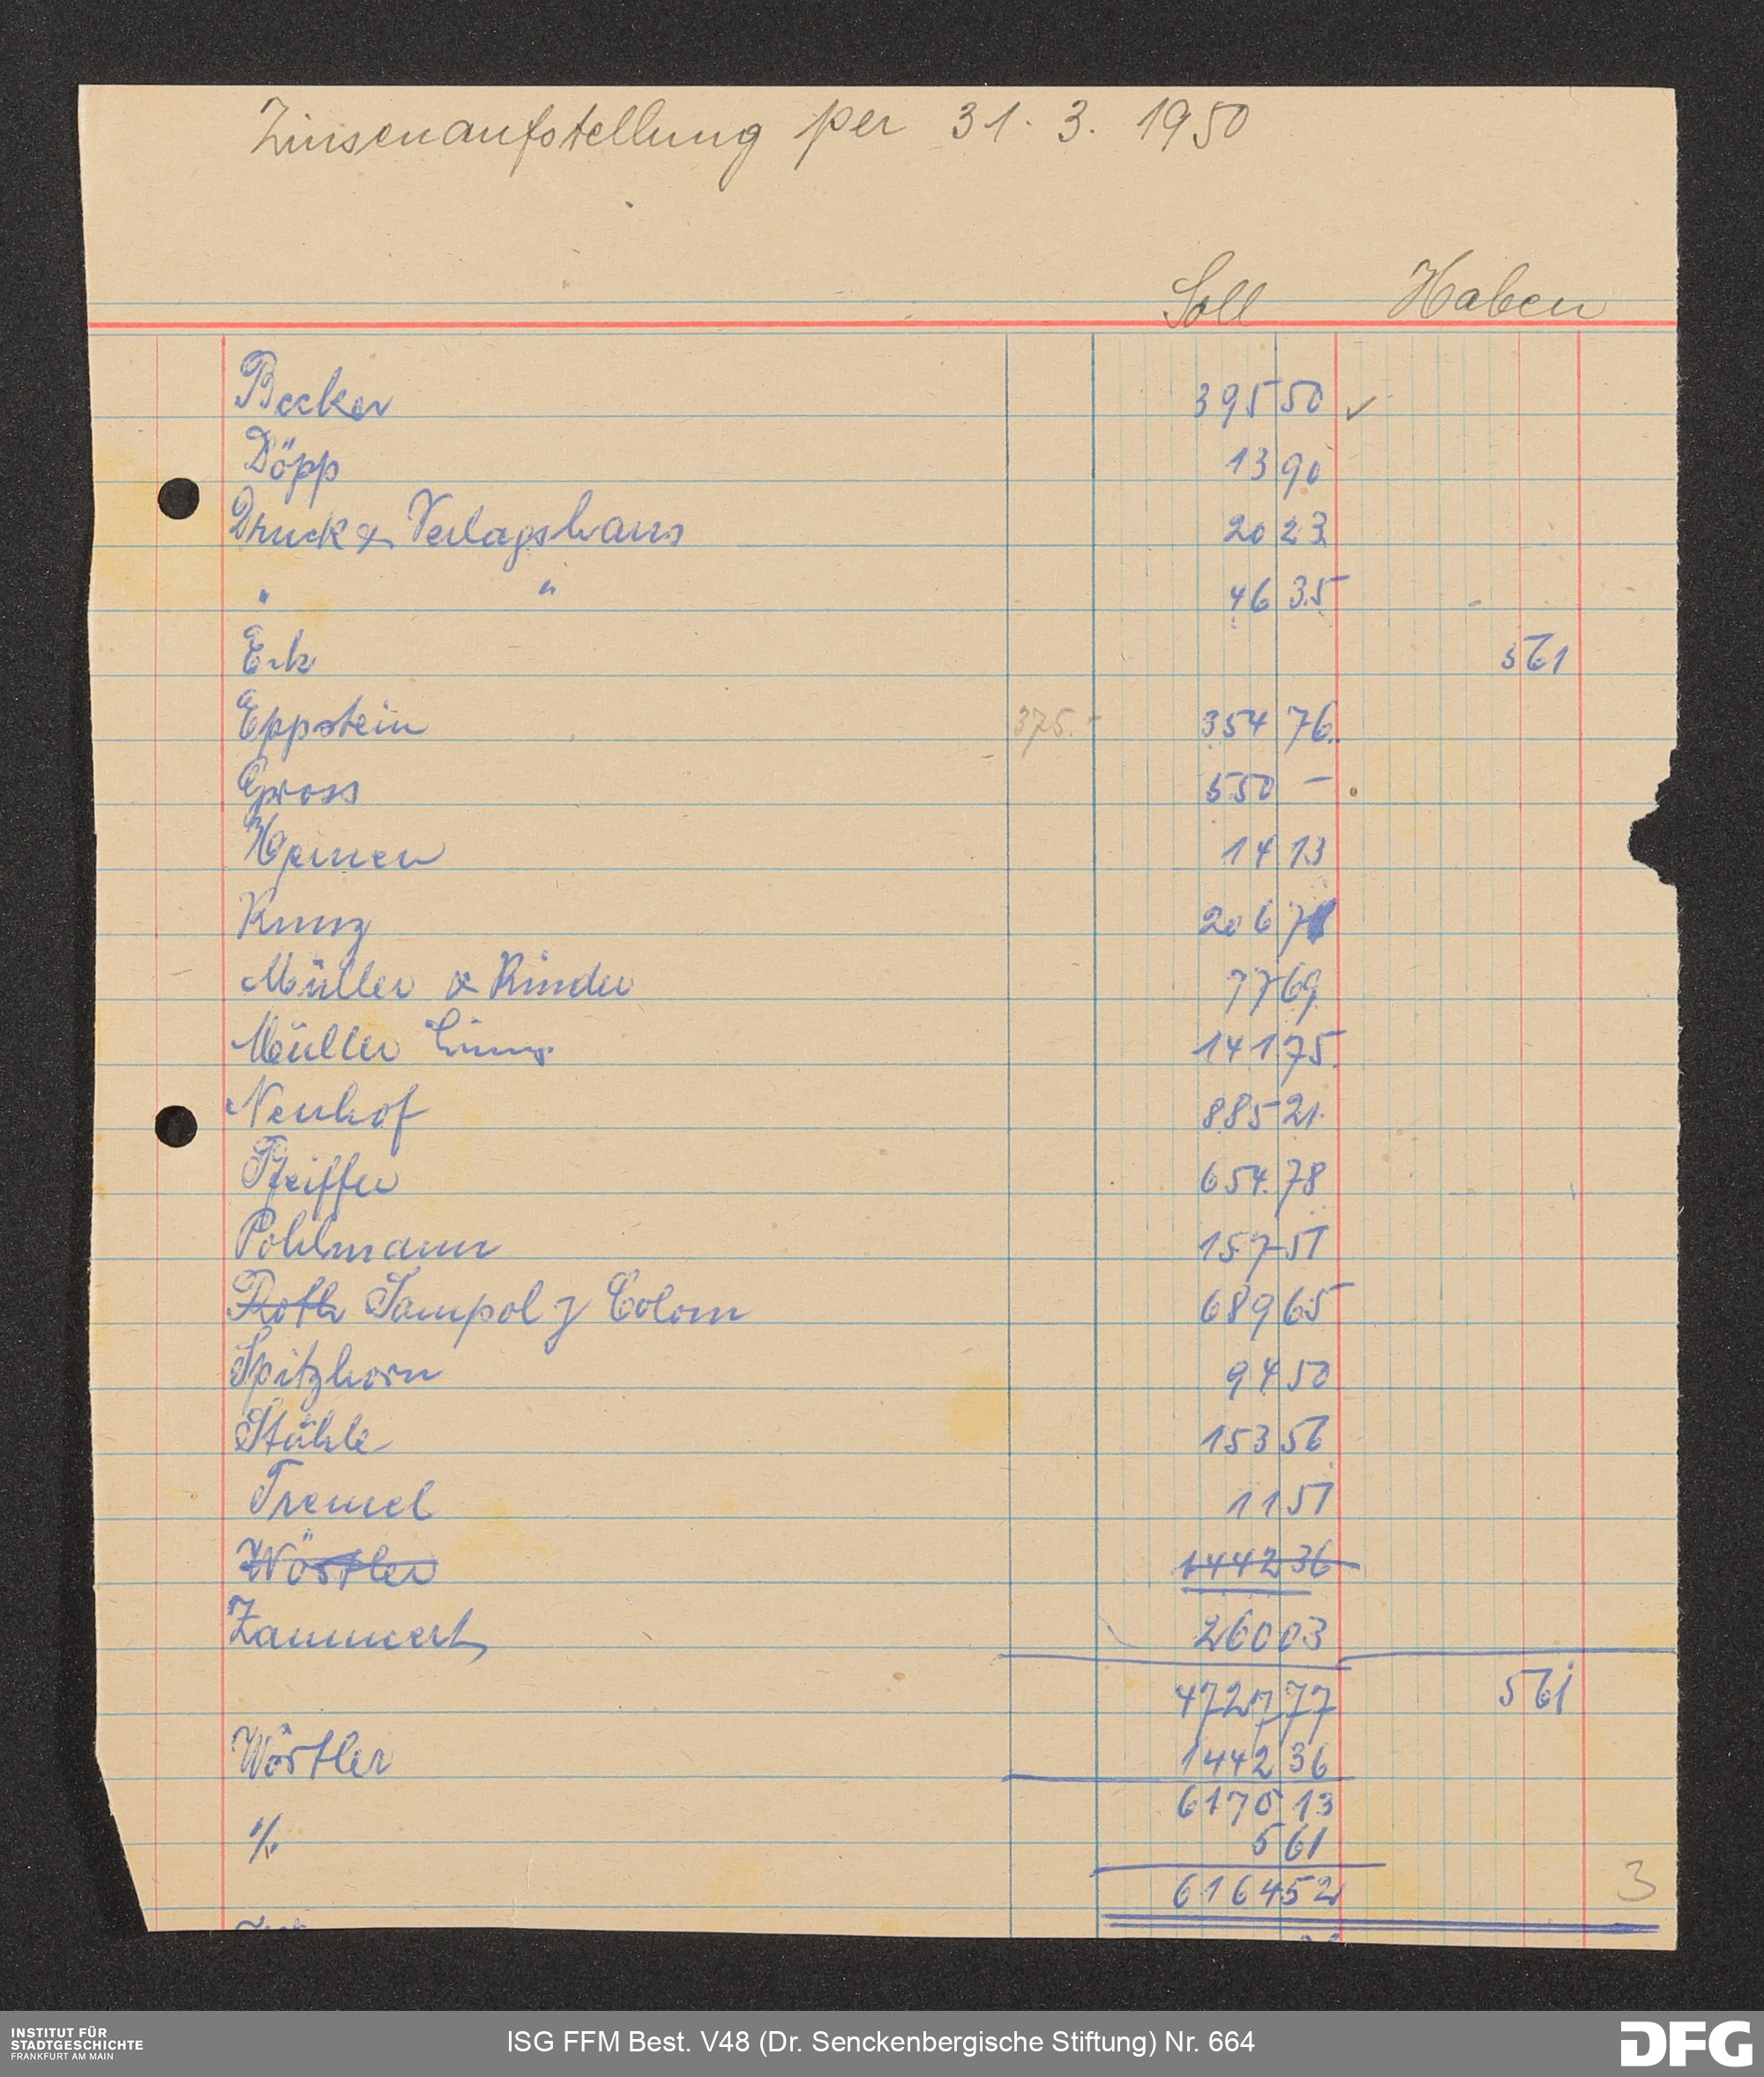 Zinsenaufstellung per 31. 3. 1950
Soll Haben
Becker 395 50 ✓
Döpp 13 90
Druck & Verlagshaus 20 23
" " 46 35
Erk 5 61
Eppstein 375.- 354 76
Gross 550 –
Heinen 14 13
Kunz 206 71
Müller & Rinder 77 69
Müller 141 75
Neuhof 885 21
Pfeiffer 654 78
Pohlmann 157 51
Roth Sampol y Colom 689 65
Spitzhorn 94 50
Stähle 153 56
Tremel 11 51
Wörtler 1442 36
Zammert 260 03
4727 77 5 61
Wörtler 1442 36
6170 13
./. 5 61
6164 52
3
INSTITUT FÜR
STADTGESCHICHTE
FRANKFURT AM MAIN
ISG FFM Best. V48 (Dr. Senckenbergische Stiftung) Nr. 664
DFG